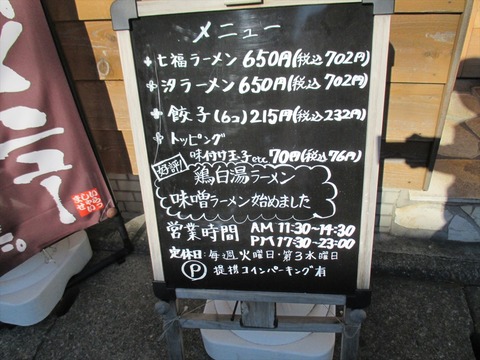 メニュー
七福ラーメン 650円(税込702円)
汐ラーメン 650円(税込702円)
餃子(6コ)215円(税込232円)
トッピング
味付け玉子etc 70円(税込76円)
好評!
鶏白湯ラーメン
味噌ラーメン始めました
営業時間 AM 11:30~14:30
PM 17:30~23:00
定休日:毎週火曜日・第3水曜日
P 提携コインパーキング有